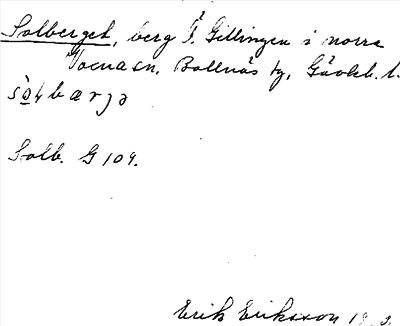 Solberget, berg f. Gillingen i norra
Voxna sn, Bollnäs tg, Gävleb. l.
sò̱ɫbærjə
Solb. G 109.
Erik Eriksson